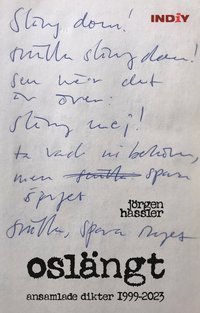 INDIY
Släng dom!
snälla släng dom!
sen när det
är över:
släng mej!
ta vad ni behöver,
men snälla spara
jörgen
hassler
snälla, spara
oslängt
ansamlade dikter 1999-2023